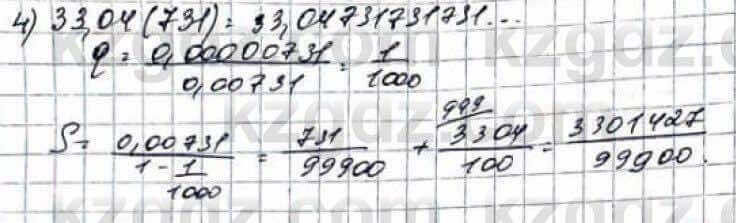 4) 33,04(731) = 33,04731731731...
q = 0,00000731 / 0,00731 = 1/1000
S = 0,00731 / (1 - 1/1000) = 731/99900 + 999 3304/100 = 3301427/99900.